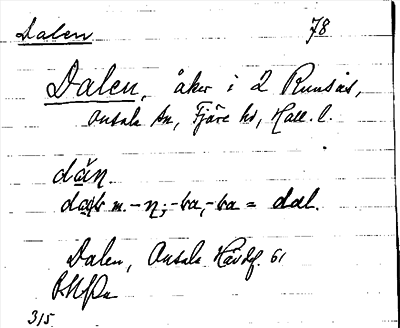 Dalen 78
Dalen, åker i 2 Runsås,
Onsala sn, Fjäre hd, Hall. l.
dan.
dal n. -n; -ba, -ba = dal.
Dalen, Onsala Hävdf. 61
315